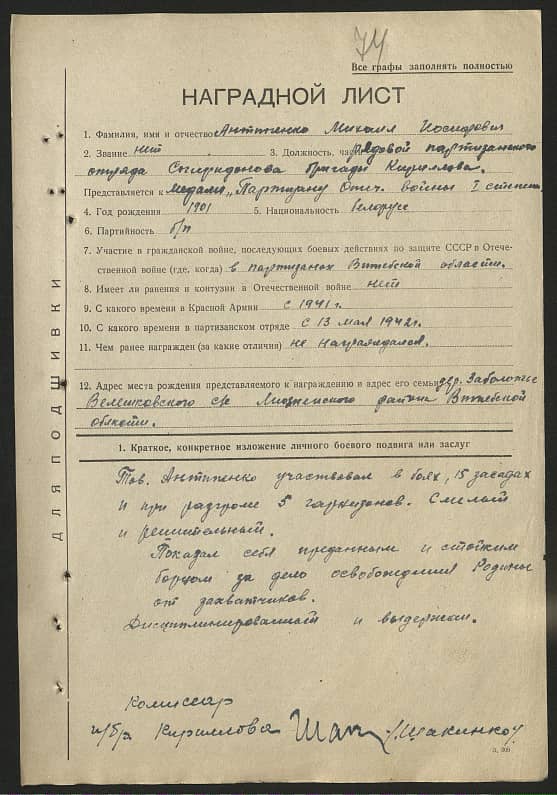 74
Все графы заполнять полностью
НАГРАДНОЙ ЛИСТ
1. Фамилия, имя и отчество Антипенко Михаил Иосифович
2. Звание нет 3. Должность, часть рядовой партизанского
отряда Спиридонова бригады Кириллова.
Представляется к медали „Партизану Отеч. войны I степени
4. Год рождения 1901 5. Национальность белорус
6. Партийность б/п
7. Участие в гражданской войне, последующих боевых действиях по защите СССР в Отече-
ственной войне (где, когда) в партизанах Витебской области.
8. Имеет ли ранения и контузии в Отечественной войне нет
9. С какого времени в Красной Армии с 1941 г.
10. С какого времени в партизанском отряде с 13 мая 1942 г.
11. Чем ранее награжден (за какие отличия) не награждался.
12. Адрес места рождения представляемого к награждению и адрес его семьи дер. Заболотье
Велешковского с/с Лиозненского района Витебской
области.
1. Краткое, конкретное изложение личного боевого подвига или заслуг
Тов. Антипенко участвовал в боях, 15 засадах
и при разгроме 5 гарнизонов. Смелый
и решительный.
Показал себя преданным и стойким
борцом за дело освобождения Родины
от захватчиков.
Дисциплинированный и выдержан.
Комиссар
п/бр Кириллова Шак /Шакинко/
ДЛЯ ПОДШИВКИ